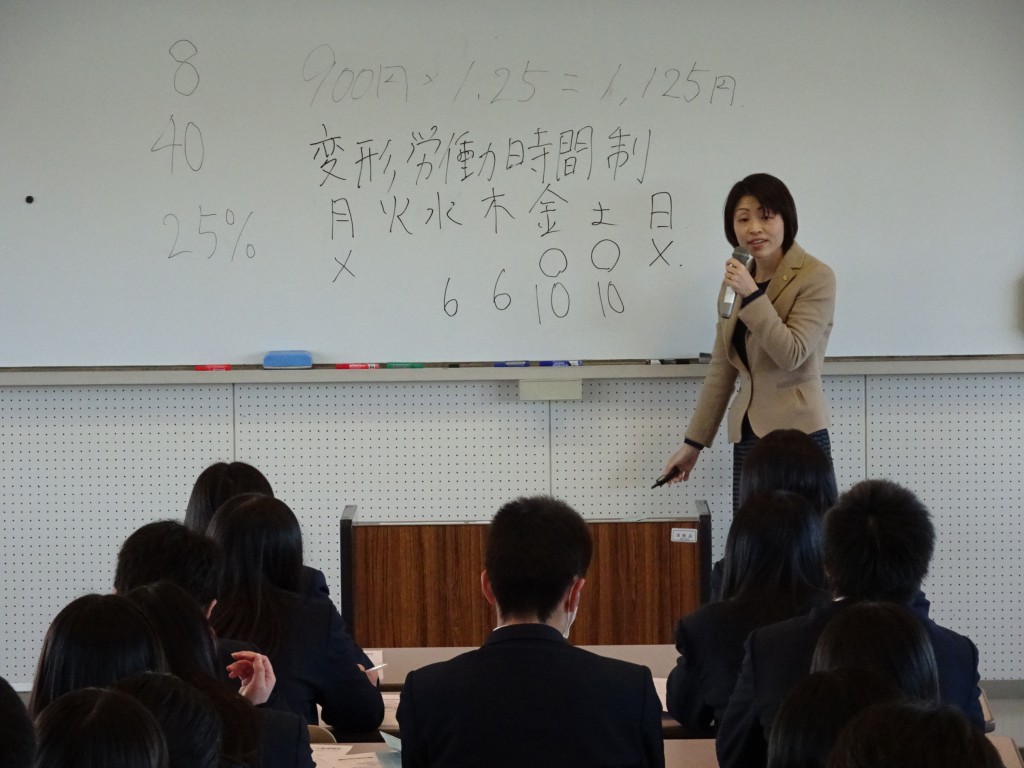 8
40
25%
900円×1.25=1,125円
変形労働時間制
月 火 水 木 金 土 日
× ○ ○ ×
6 6 10 10